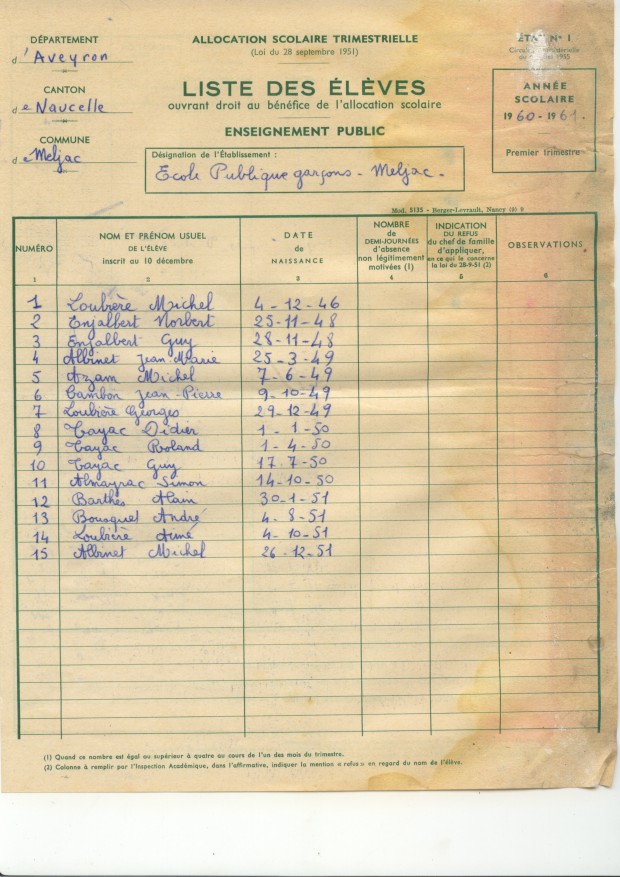 DÉPARTEMENT
d'Aveyron
CANTON
de Naucelle
COMMUNE
de Meljac
ALLOCATION SCOLAIRE TRIMESTRIELLE
(Loi du 28 septembre 1951)
LISTE DES ÉLÈVES
ouvrant droit au bénéfice de l'allocation scolaire
ENSEIGNEMENT PUBLIC
Désignation de l'Établissement :
Ecole Publique garçons - Meljac.
ÉTAT N° 1
1955
ANNÉE
SCOLAIRE
1960-1961.
Premier trimestre
Mod. 5135 - Berger-Levrault, Nancy
NUMÉRO
NOM ET PRÉNOM USUEL
DE L'ÉLÈVE
inscrit au 10 décembre
DATE
de
NAISSANCE
NOMBRE
de
DEMI-JOURNÉES
d'absence
non légitimement
motivées (1)
INDICATION
DU REFUS
du chef de famille
d'appliquer,
en ce qui le concerne
la loi du 28-9-51 (2)
OBSERVATIONS
1 2 3 4 5 6
1 Loubière Michel 4-12-46
2 Enjalbert Norbert 25-11-48
3 Enjalbert Guy 28-11-48
4 Albinet Jean-Marie 25-3-49
5 Azam Michel 7-6-49
6 Cambon Jean-Pierre 9-10-49
7 Loubière Georges 29-12-49
8 Tayac Didier 1-1-50
9 Tayac Roland 1-4-50
10 Tayac Guy 17.7-50
11 Almayrac Simon 14-10-50
12 Barthes Alain 30-1-51
13 Bousquet André 4-8-51
14 Loubière Aimé 4-10-51
15 Albinet Michel 26-12-51
(1) Quand ce nombre est égal ou supérieur à quatre au cours de l'un des mois du trimestre.
(2) Colonne à remplir par l'Inspection Académique, dans l'affirmative, indiquer la mention « refus » en regard du nom de l'élève.